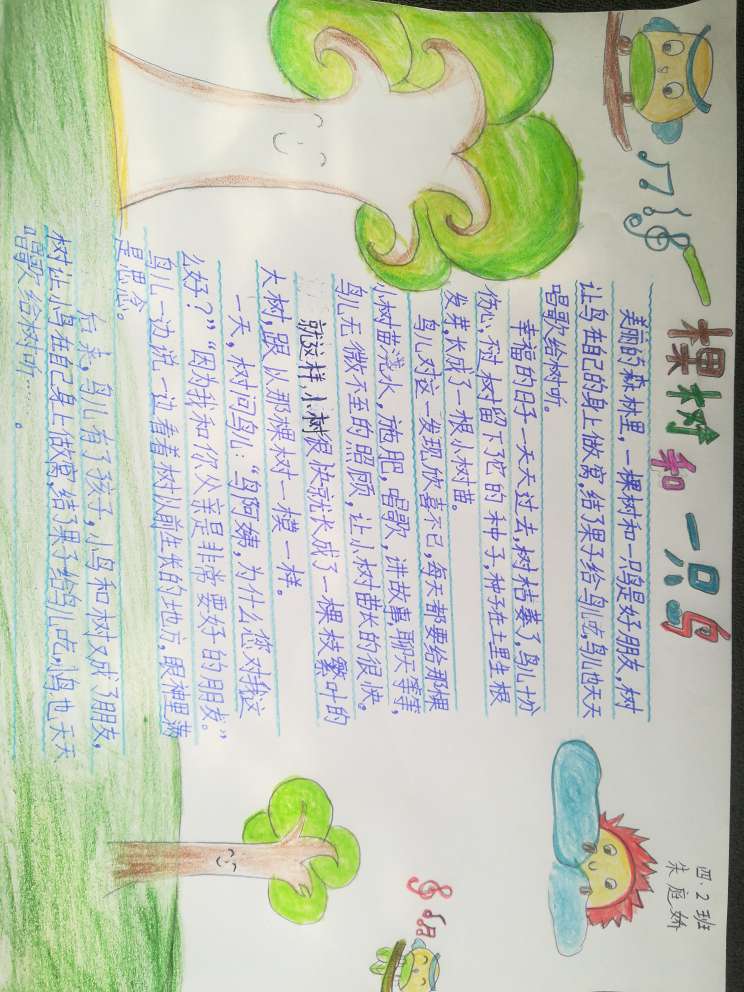 一棵树和一只鸟
四.2班
朱庭娇
美丽的森林里,一棵树和一只鸟是好朋友,树
让鸟在自己的身上做窝,结了果子给鸟儿吃,鸟儿也天天
唱歌给树听。
幸福的日子一天天过去,树枯萎了,鸟儿十分
伤心,不过,树留下了它的种子,种子在土里生根
发芽,长成了一根小树苗。
鸟儿对这一发现,欣喜不已,每天都要给那棵
小树苗浇水,施肥,唱歌,讲故事,聊天等等,
鸟儿无微不至的照顾,让小树苗长的很快。
就这样,小树很快就长成了一棵枝繁叶的
大树,跟从那棵树一模一样。
一天,树问鸟儿:“鸟阿姨,为什么您对我这
么好?”“因为我和你父亲是非常要好的朋友。”
鸟儿一边说一边看着树从前生长的地方,眼神里满
是思念。
后来,鸟儿有了孩子,小鸟和树又成了朋友,
树让小鸟在自己身上做窝,结了果子给鸟儿吃,小鸟也天天
唱歌给树听……。